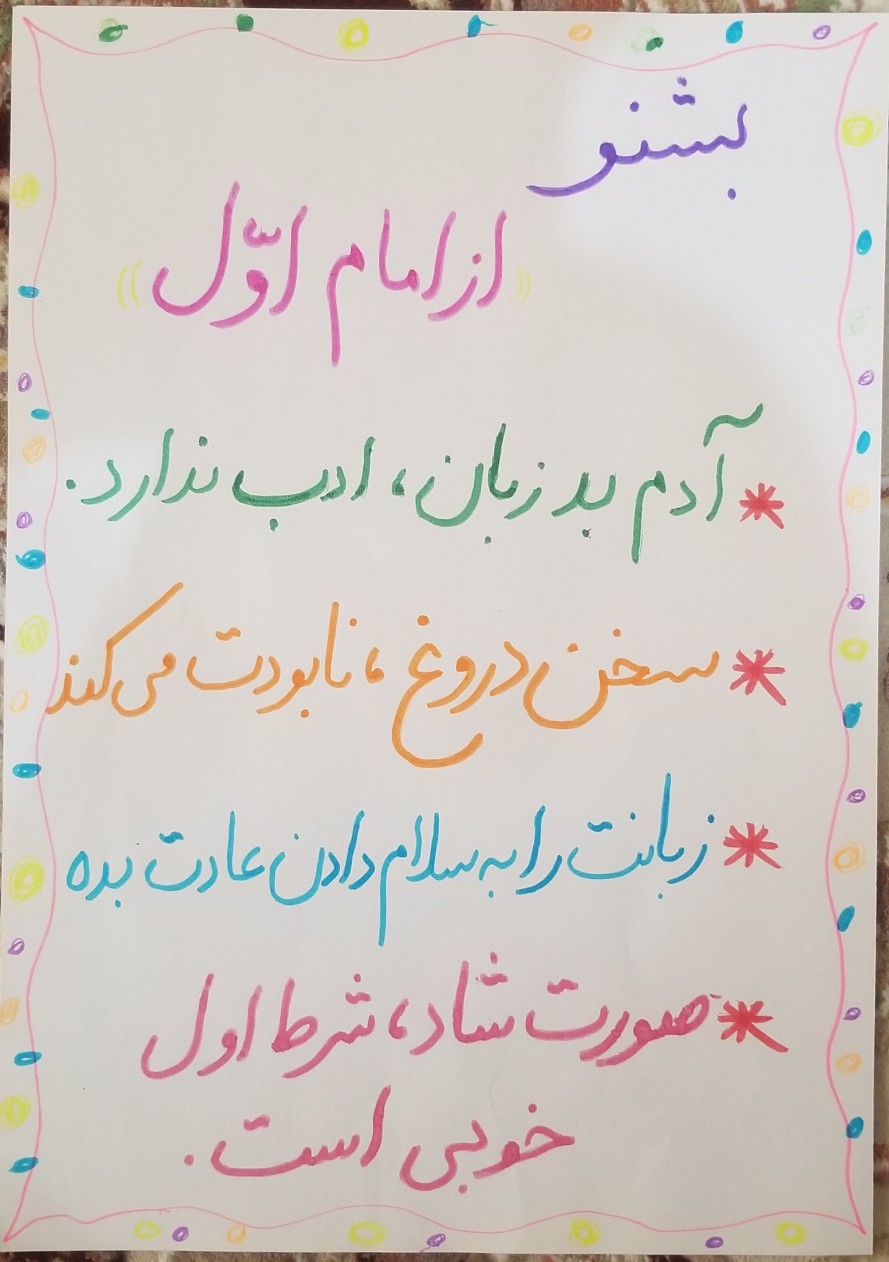 بشنو
((از امام اوّل))
* آدم بد زبان، ادب ندارد.
* سخن دروغ، نابودت می‌کند
* زبانت را به سلام دادن عادت بده
* صورت شاد، شرط اول
خوبی است.